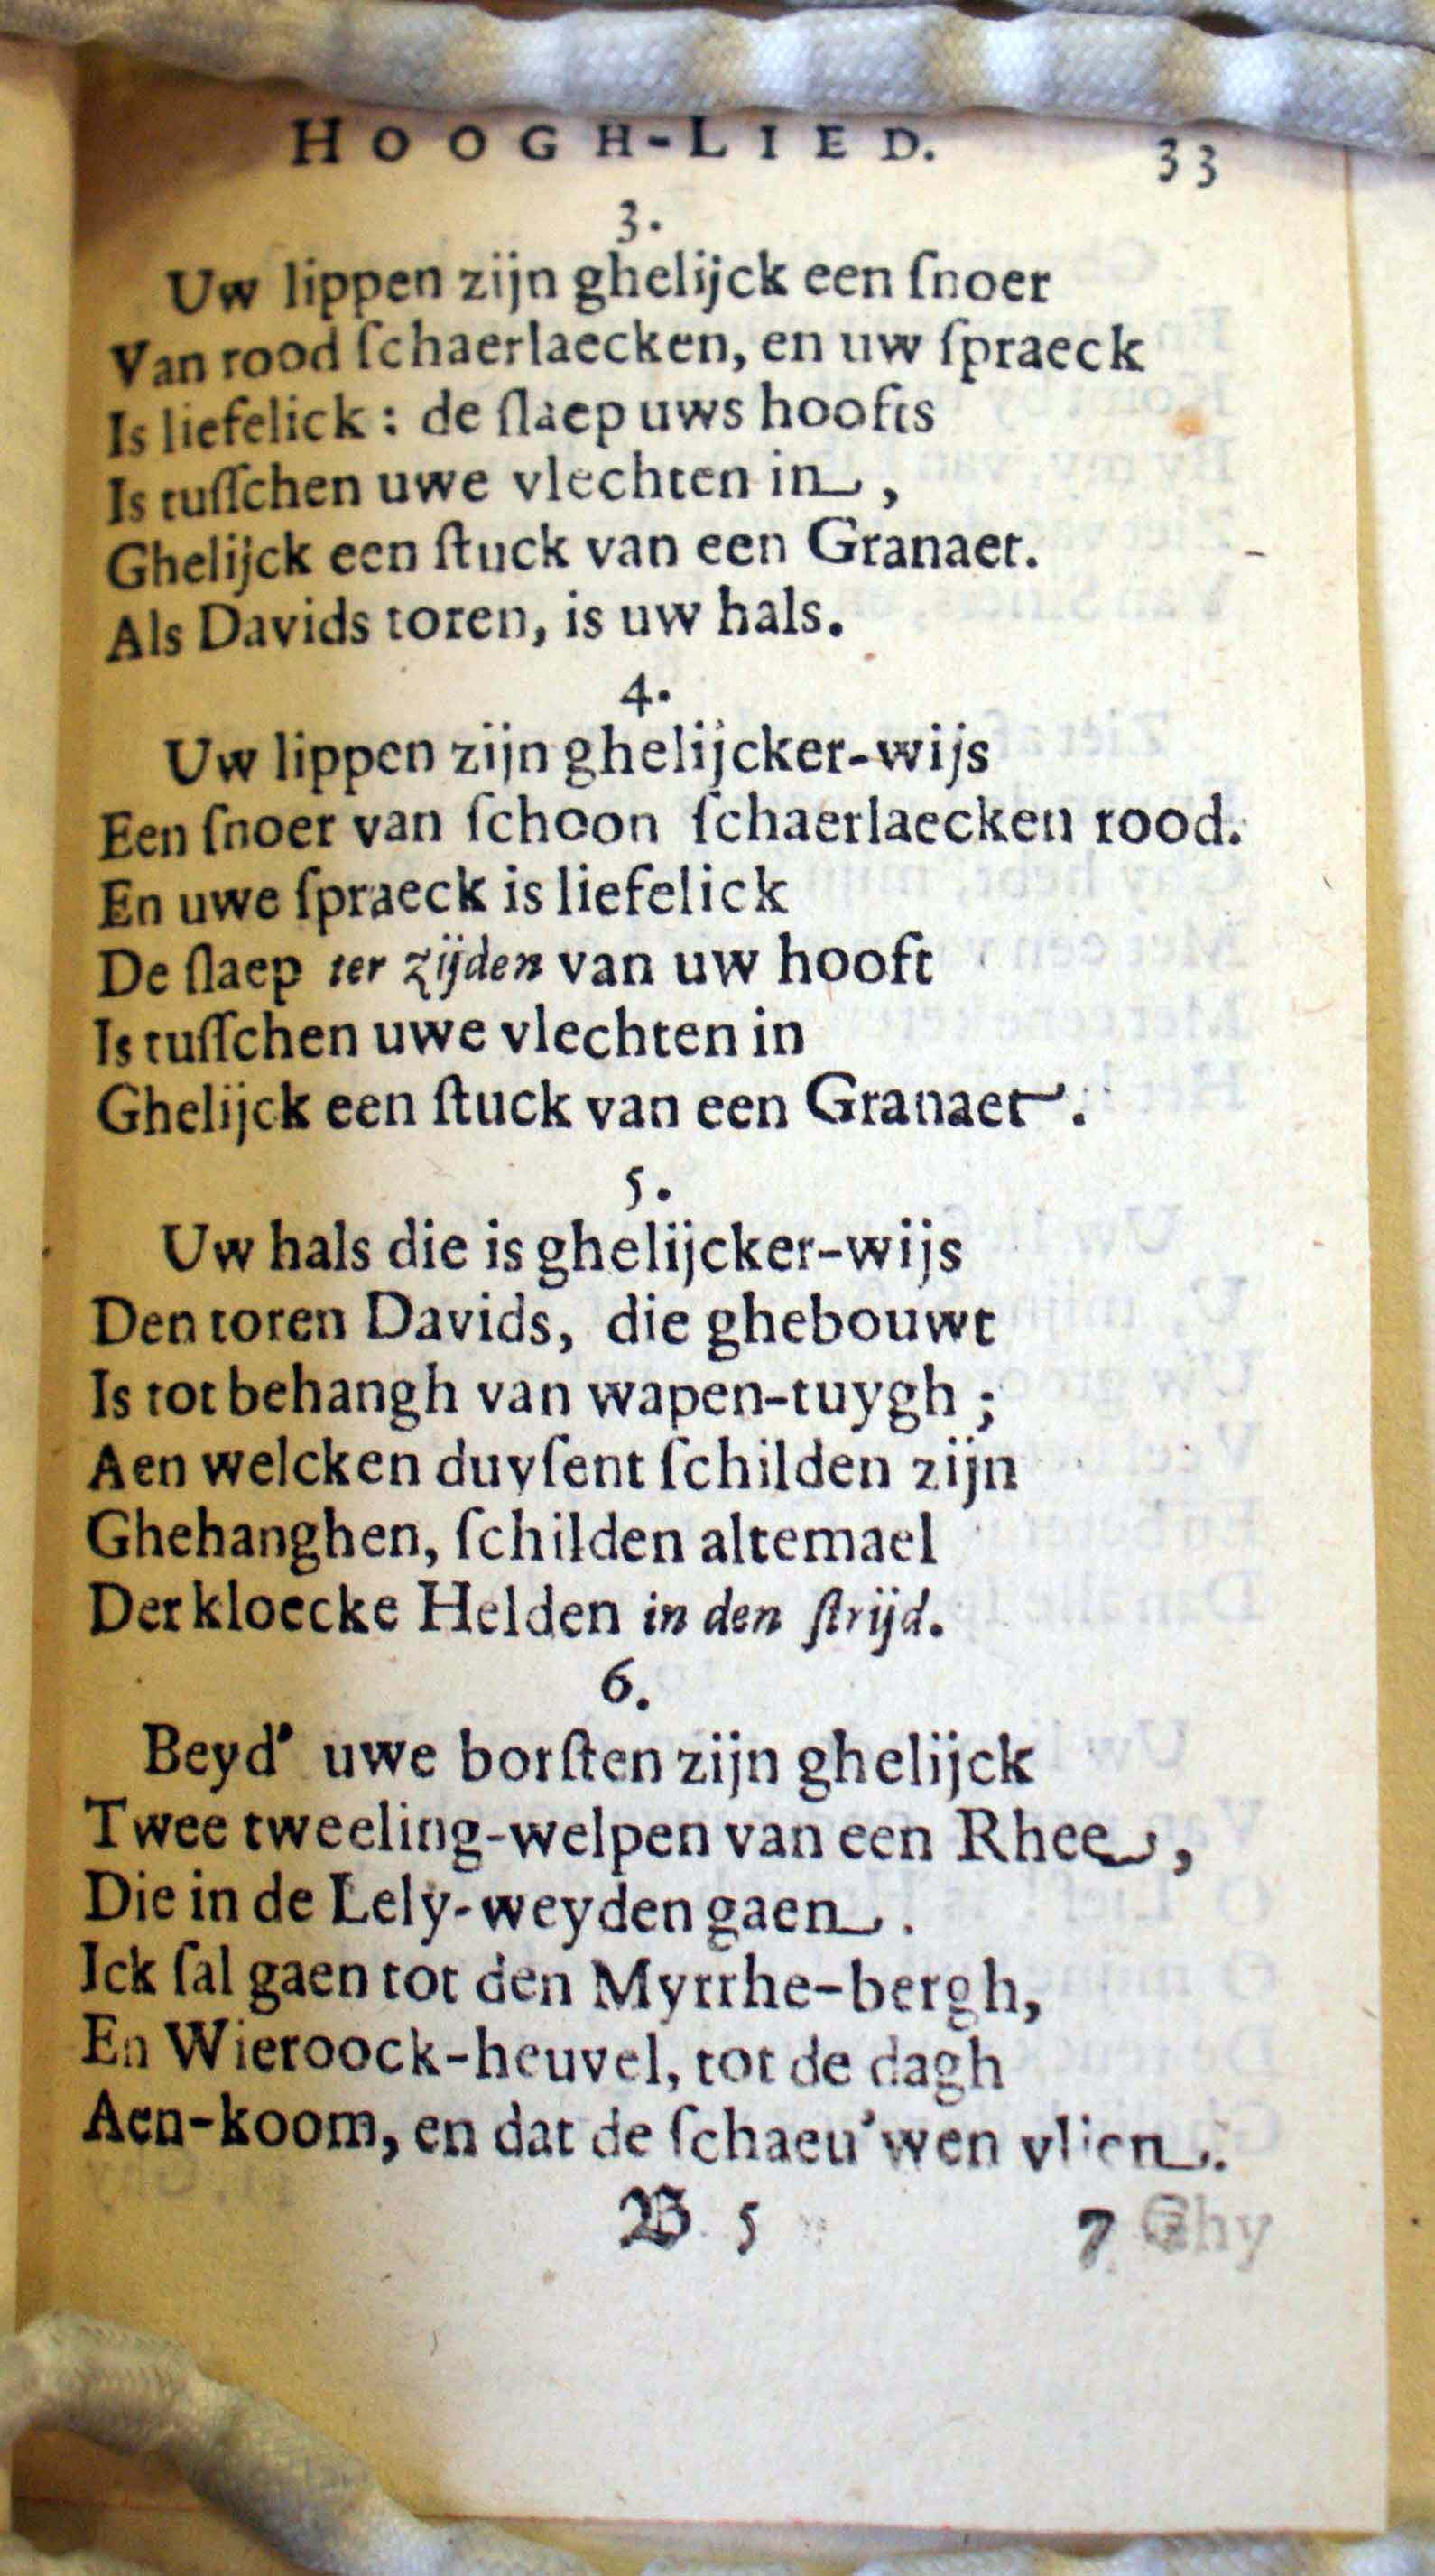 HOOGH-LIED. 33
3.
Uw lippen zijn ghelijck een ſnoer
Van rood ſchaerlaecken, en uw ſpraeck
Is liefelick: de ſlaep uws hoofts
Is tuſſchen uwe vlechten in,
Ghelijck een ſtuck van een Granaet.
Als Davids toren, is uw hals.
4.
Uw lippen zijn ghelijcker-wijs
Een ſnoer van ſchoon ſchaerlaecken rood.
En uwe ſpraeck is liefelick
De ſlaep ter zijden van uw hooft
Is tuſſchen uwe vlechten in
Ghelijck een ſtuck van een Granaet.
5.
Uw hals die is ghelijcker-wijs
Den toren Davids, die ghebouwt
Is tot behangh van wapen-tuygh;
Aen welcken duyſent ſchilden zijn
Ghehanghen, ſchilden altemael
Der kloecke Helden in den ſtrijd.
6.
Beyd' uwe borſten zijn ghelijck
Twee tweeling-welpen van een Rhee,
Die in de Lely-weyden gaen.
Ick ſal gaen tot den Myrrhe-bergh,
En Wieroock-heuvel, tot de dagh
Aen-koom, en dat de ſchaeu'wen vlien.
B 5 7 Ghy